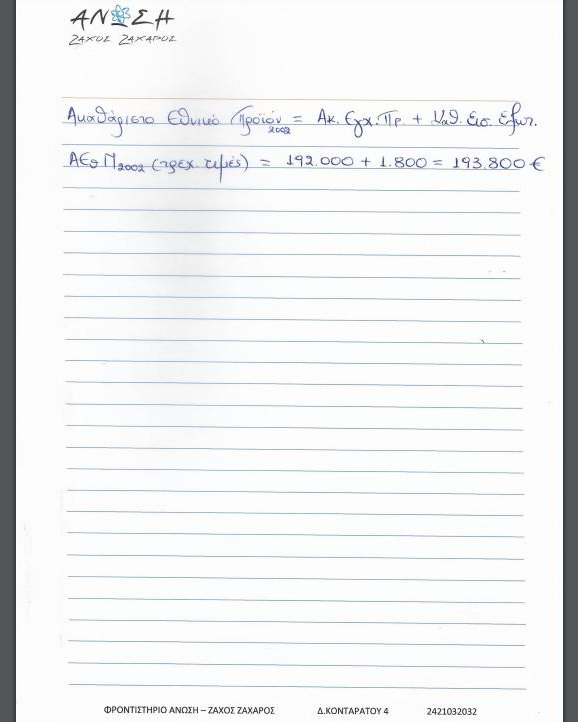 ΑΝΩΣΗ
ΖΑΧΟΣ ΖΑΧΑΡΟΣ
Ακαθάριστο Εθνικό Προϊόν 2002 = Ακ. Εγχ. Πρ. + Καθ. Εισ. Εξωτ.
ΑΕθΠ2002 (τρεχ. τιμές) = 192.000 + 1.800 = 193.800 €
ΦΡΟΝΤΙΣΤΗΡΙΟ ΑΝΩΣΗ – ΖΑΧΟΣ ΖΑΧΑΡΟΣ Δ.ΚΟΝΤΑΡΑΤΟΥ 4 2421032032